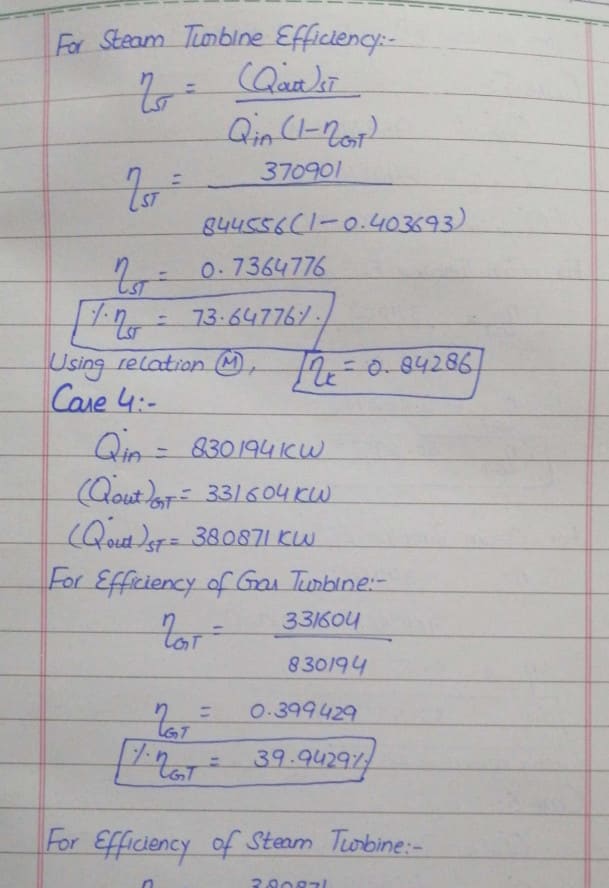 For Steam Turbine Efficiency:-
η_ST = (Q̇out)_ST / Q̇in (1-η_GT)
η_ST = 370901 / 844556(1-0.403693)
η_ST = 0.7364776
%η_ST = 73.64776%.
Using relation Ⓜ, η_c = 0.84286
Case 4:-
Q̇in = 830194 KW
(Q̇out)_GT = 331604 KW
(Q̇out)_ST = 380871 KW
For Efficiency of Gas Turbine:-
η_GT = 331604 / 830194
η_GT = 0.399429
%η_GT = 39.9429%
For Efficiency of Steam Turbine:-
380871